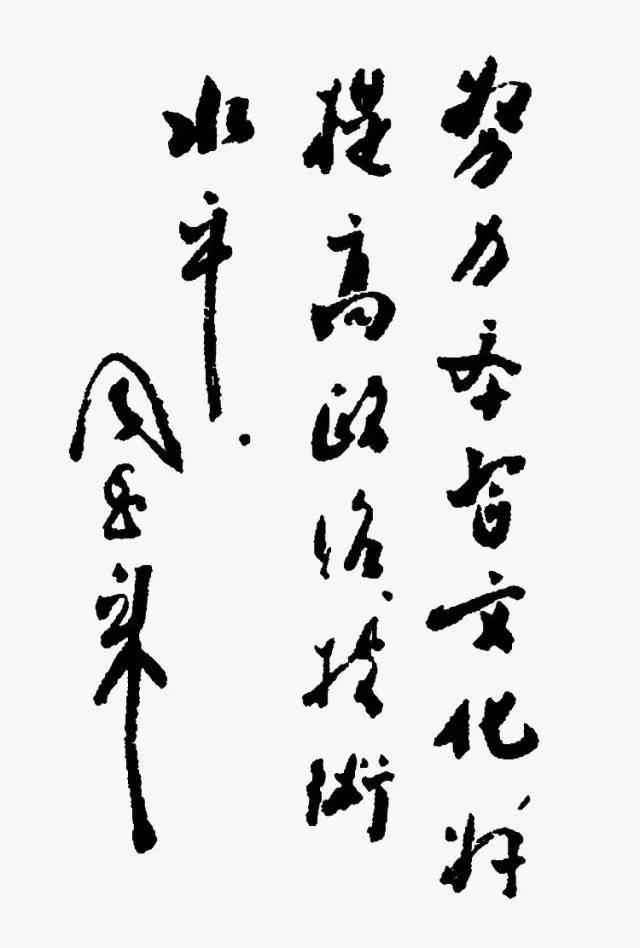 努力学習文化，并
提高政治、技術
水平.
周恩来